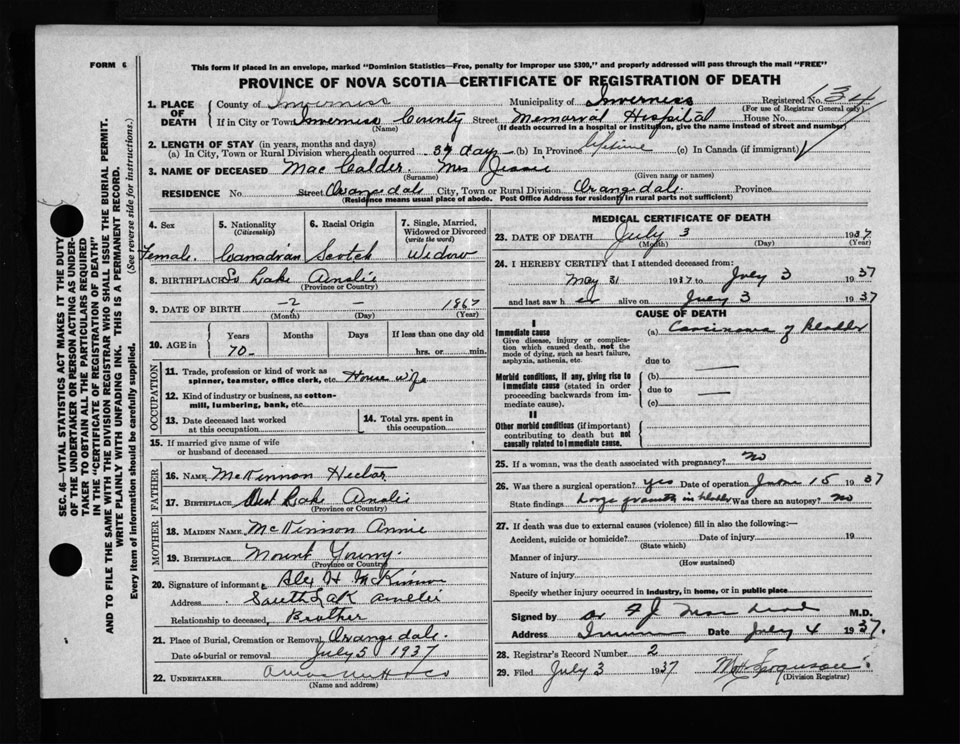 FORM 6
This form if placed in an envelope, marked "Dominion Statistics—Free, penalty for improper use $300," and properly addressed will pass through the mail "FREE"
PROVINCE OF NOVA SCOTIA—CERTIFICATE OF REGISTRATION OF DEATH
SEC. 46—VITAL STATISTICS ACT MAKES IT THE DUTY
OF THE UNDERTAKER OR PERSON ACTING AS UNDER-
TAKER TO OBTAIN ALL THE PARTICULARS REQUIRED
IN THE "CERTIFICATE OF REGISTRATION OF DEATH"
AND TO FILE THE SAME WITH THE DIVISION REGISTRAR WHO SHALL ISSUE THE BURIAL PERMIT.
WRITE PLAINLY WITH UNFADING INK. THIS IS A PERMANENT RECORD.
Every item of information should be carefully supplied. (See reverse side for instructions.)
1. PLACE OF DEATH County of Inverness Municipality of Inverness Registered No. 134
(For use of Registrar General only)
If in City or Town Inverness County Street Memorial Hospital House No.
(Name) (If death occurred in a hospital or institution, give the name instead of street and number)
2. LENGTH OF STAY (in years, months and days)
(a) In City, Town or Rural Division where death occurred days (b) In Province lifetime (c) In Canada (if immigrant)
3. NAME OF DECEASED Mac Calder Mrs Jessie
(Surname) (Given name or names)
RESIDENCE No. Street Orangedale City, Town or Rural Division Orangedale Province
(Residence means usual place of abode. Post Office Address for residents in rural parts not sufficient)
4. Sex
Female
5. Nationality (Citizenship)
Canadian
6. Racial Origin
Scotch
7. Single, Married, Widowed or Divorced (write the word)
Widow
8. BIRTHPLACE So Lake Ainslie
(Province or Country)
9. DATE OF BIRTH —2 — 1867
(Month) (Day) (Year)
10. AGE in Years Months Days If less than one day old
70 hrs. or min.
OCCUPATION
11. Trade, profession or kind of work as spinner, teamster, office clerk, etc. House wife
12. Kind of industry or business, as cotton-mill, lumbering, bank, etc.
13. Date deceased last worked at this occupation
14. Total yrs. spent in this occupation
15. If married give name of wife or husband of deceased
FATHER
16. NAME McKinnon Hector
17. BIRTHPLACE West Lake Ainslie
(Province or Country)
MOTHER
18. MAIDEN NAME McKinnon Annie
19. BIRTHPLACE Mount Young
(Province or Country)
20. Signature of informant Alex H McKinnon
Address South Lak Ainslie
Relationship to deceased Brother
21. Place of Burial, Cremation or Removal Orangedale
Date of burial or removal July 5 1937
22. UNDERTAKER
(Name and address)
MEDICAL CERTIFICATE OF DEATH
23. DATE OF DEATH July 3 1937
(Month) (Day) (Year)
24. I HEREBY CERTIFY that I attended deceased from:
May 31 1937 to July 3 1937
and last saw h er alive on July 3 1937
CAUSE OF DEATH
I
Immediate cause
Give disease, injury or complication which caused death, not the mode of dying, such as heart failure, asphyxia, asthenia, etc.
(a) Carcinoma of Bladder
due to —
Morbid conditions, if any, giving rise to immediate cause (stated in order proceeding backwards from immediate cause).
(b)
due to —
(c)
II
Other morbid conditions (if important) contributing to death but not causally related to immediate cause.
25. If a woman, was the death associated with pregnancy? no
26. Was there a surgical operation? yes Date of operation June 15 1937
State findings large growth in bladder Was there an autopsy? no
27. If death was due to external causes (violence) fill in also the following:—
Accident, suicide or homicide? Date of injury 19
(State which)
Manner of injury
(How sustained)
Nature of injury
Specify whether injury occurred in industry, in home, or in public place
Signed by Dr M.D.
Address Date July 4 1937.
28. Registrar's Record Number 2
29. Filed July 3 1937 Ferguson
(Division Registrar)